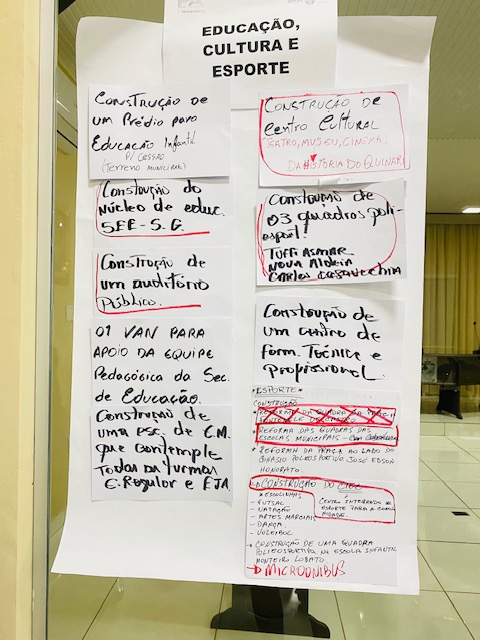 EDUCAÇÃO,
CULTURA E
ESPORTE
CONSTRUÇÃO DE
um Prédio para
Educação Infantil
P/ CESSÃO
(TERRENO MUNICIPAL)
Construção do
Núcleo de educ.
SEE-S.G.
Construção de
um auditório
Público.
01 VAN PARA
APOIO DA EQUIPE
Pedagógica da Sec.
de Educação.
Construção de
uma esc. de E.M.
que contemple
Todas as turmas
E. Regular e EJA
CONSTRUÇÃO DE
Centro Cultural
TEATRO, MUSEU, CINEMA,
DA HISTÓRIA DO QUINARI
Construção de
03 quadras poli-
esport.
TUFFI ASMAR
NOVA ALDEIA
CARLOS
Construção de
um centro de
form. Técnica e
Profissional.
*ESPORTE*
CONSTRUÇÃO
REFORMA DA QUADRA DA
* REFORMA DAS QUADRAS DAS
ESCOLAS MUNICIPAIS - Com Cobertura
* REFORMA DA PRAÇA AO LADO DO
GINÁSIO POLIESPORTIVO JOSÉ EDSON
HONORATO.
CONSTRUÇÃO DO
* ESCOLINHAS
- FUTSAL
- NATAÇÃO
- ARTES MARCIAIS
- DANÇA
- VOLEIBOL
CENTR INTEGRADO DE
ESPORTE PARA A COMU
NIDADE.
* CONSTRUÇÃO DE UMA QUADRA
POLIESPORTIVA NA ESCOLA INFANTIL
MONTEIRO LOBATO
MICROÔNIBUS